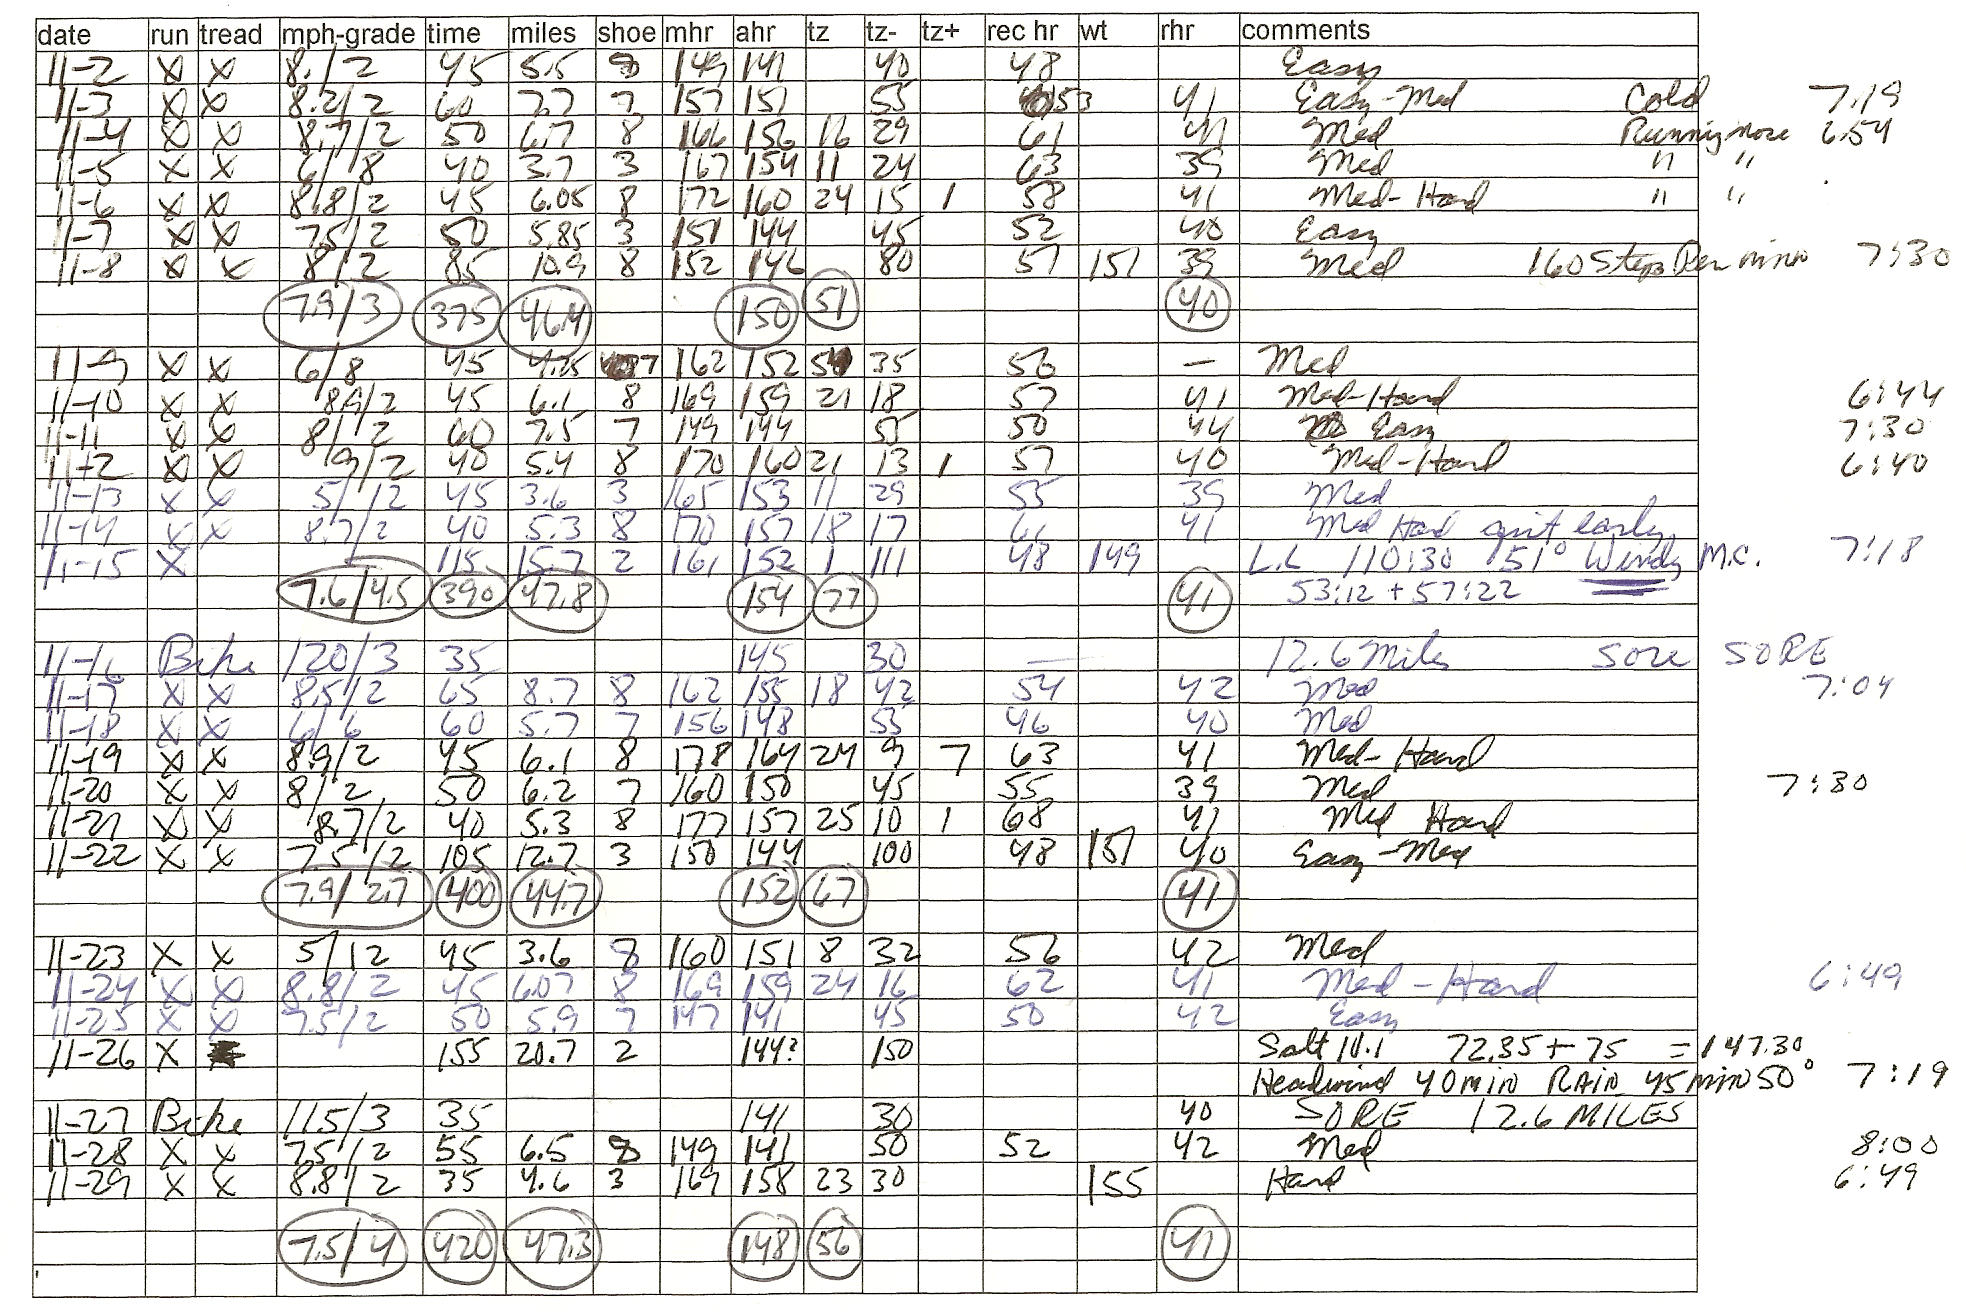 date run tread mph-grade time miles shoe mhr ahr tz tz- tz+ rec hr wt rhr comments
11-2 X X 8.1/2 45 5.5 8 149 141 40 48 Easy
11-3 X X 8.2/2 60 7.7 7 157 151 55 53 41 Easy-Med Cold 7:19
11-4 X X 8.7/2 50 6.7 8 166 156 16 29 61 41 Med Runny nose 6:54
11-5 X X 6/8 40 3.7 3 167 154 11 24 63 39 Med " "
11-6 X X 8.8/2 45 6.05 8 172 160 24 15 1 58 41 Med-Hard " "
11-7 X X 7.5/2 50 5.85 3 151 144 45 52 40 Easy
11-8 X X 8/2 85 10.9 8 152 146 80 57 151 39 Med 160 Steps Per min 7:30
7.9/3 375 46.4 150 51 40
11-9 X X 6/8 45 4.25 7 162 152 5 35 56 — Med
11-10 X X 8.9/2 45 6.1 8 169 159 21 18 57 41 Med-Hard 6:44
11-11 X X 8/2 60 7.5 7 149 144 55 50 44 Easy 7:30
11-12 X X 9/2 40 5.4 8 170 160 21 13 1 57 40 Med-Hard 6:40
11-13 X X 5/12 45 3.6 3 165 153 11 29 55 39 Med
11-14 X X 8.7/2 40 5.3 8 170 157 18 17 61 41 Med Hard quit early
11-15 X 115 15.7 2 161 152 1 111 48 149 L.L 110:30 51° Windy M.C. 7:18
7.6/4.5 390 47.8 154 77 41 53:12 + 57:22
11-16 Bike 120/3 35 145 30 — 12.6 Miles sore SORE
11-17 X X 8.5/2 65 8.7 8 162 155 18 42 54 42 Med 7:04
11-18 X X 6/6 60 5.7 7 156 148 55 46 40 Med
11-19 X X 8.9/2 45 6.1 8 178 164 24 9 7 63 41 Med-Hard
11-20 X X 8/2 50 6.2 7 160 150 45 55 39 Med 7:30
11-21 X X 8.7/2 40 5.3 8 177 157 25 10 1 68 41 Med Hard
11-22 X X 7.5/2 105 12.7 3 150 144 100 48 151 40 Easy-Med
7.9/2.7 400 44.7 152 67 41
11-23 X X 5/12 45 3.6 8 160 151 8 32 56 42 Med
11-24 X X 8.8/2 45 6.07 8 169 159 24 16 62 41 Med-Hard 6:49
11-25 X X 7.5/2 50 5.9 7 147 141 45 50 42 Easy
11-26 X 155 20.7 2 144? 150 Salt 10.1 72.35 + 75 = 147.30
Headwind 40 min RAIN 45 min 50° 7:19
11-27 Bike 115/3 35 141 30 40 SORE 12.6 MILES
11-28 X X 7.5/2 55 6.5 8 149 141 50 52 42 Med 8:00
11-29 X X 8.8/2 35 4.6 3 169 158 23 30 155 Hard 6:49
7.5/4 420 47.3 148 56 41